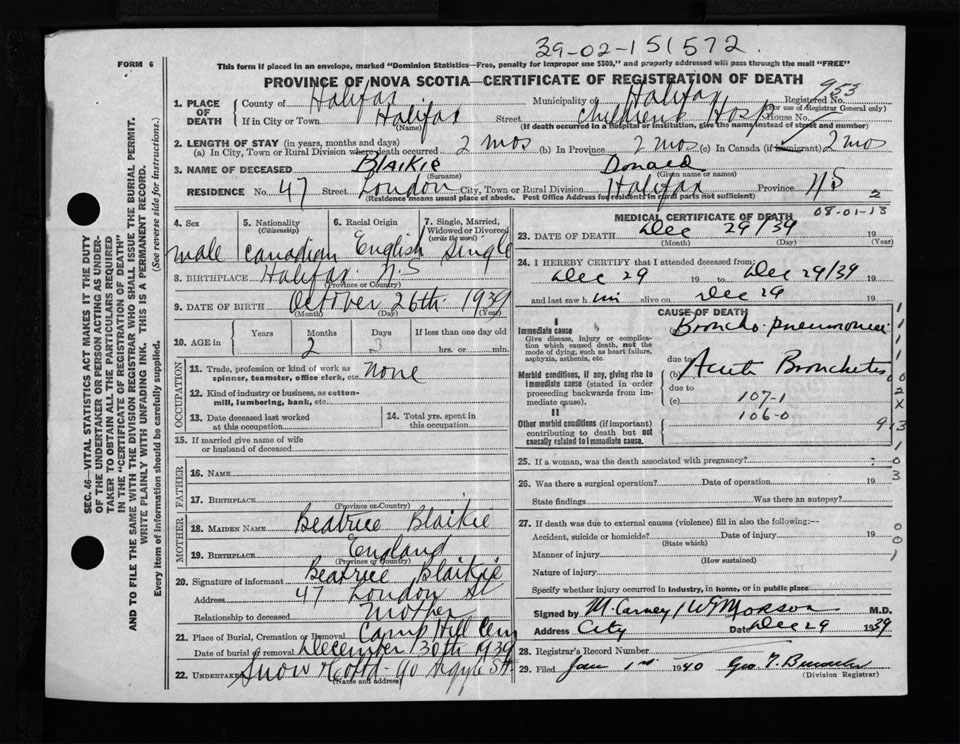 39-02-151572.
FORM 6
This form if placed in an envelope, marked "Dominion Statistics—Free, penalty for improper use $300," and properly addressed will pass through the mail "FREE"
PROVINCE OF NOVA SCOTIA—CERTIFICATE OF REGISTRATION OF DEATH
953
1. PLACE OF DEATH
County of Halifax Municipality of Halifax Registered No.
(For use of Registrar General only)
If in City or Town Halifax Street Childrens Hosp House No.
(Name) (If death occurred in a hospital or institution, give the name instead of street and number)
2. LENGTH OF STAY (in years, months and days)
(a) In City, Town or Rural Division where death occurred 2 mos (b) In Province 2 mos (c) In Canada (if immigrant) 2 mos
3. NAME OF DECEASED Blaikie Donald
(Surname) (Given name or names)
RESIDENCE No. 47 Street London City, Town or Rural Division Halifax Province NS 2
(Residence means usual place of abode. Post Office Address for residents in rural parts not sufficient)
SEC. 46—VITAL STATISTICS ACT MAKES IT THE DUTY
OF THE UNDERTAKER OR PERSON ACTING AS UNDER-
TAKER TO OBTAIN ALL THE PARTICULARS REQUIRED
IN THE "CERTIFICATE OF REGISTRATION OF DEATH"
AND TO FILE THE SAME WITH THE DIVISION REGISTRAR WHO SHALL ISSUE THE BURIAL PERMIT.
WRITE PLAINLY WITH UNFADING INK. THIS IS A PERMANENT RECORD.
Every item of information should be carefully supplied. (See reverse side for instructions.)
4. Sex male
5. Nationality (Citizenship) Canadian
6. Racial Origin English
7. Single, Married, Widowed or Divorced (write the word) Single
8. BIRTHPLACE Halifax N.S
(Province or Country)
9. DATE OF BIRTH October 26th 1939
(Month) (Day) (Year)
10. AGE in Years Months Days If less than one day old
2 3 hrs. or min.
OCCUPATION
11. Trade, profession or kind of work as spinner, teamster, office clerk, etc. none
12. Kind of industry or business, as cotton-mill, lumbering, bank, etc.
13. Date deceased last worked at this occupation
14. Total yrs. spent in this occupation
15. If married give name of wife or husband of deceased
FATHER
16. NAME
17. BIRTHPLACE
(Province or Country)
MOTHER
18. MAIDEN NAME Beatrice Blaikie
19. BIRTHPLACE England
(Province or Country)
20. Signature of informant Beatrice Blaikie
Address 47 London St
Relationship to deceased Mother
21. Place of Burial, Cremation or Removal Camp Hill Cem
Date of burial or removal December 30th 1939
22. UNDERTAKER Snow 90 Argyle St.
(Name and address)
MEDICAL CERTIFICATE OF DEATH
08-01-13
23. DATE OF DEATH Dec 29/39 19
(Month) (Day) (Year)
24. I HEREBY CERTIFY that I attended deceased from:
Dec 29 19 to Dec 29/39 19
and last saw him alive on Dec 29 19
CAUSE OF DEATH
I
Immediate cause
Give disease, injury or complication which caused death, not the mode of dying, such as heart failure, asphyxia, asthenia, etc.
(a) Broncho-pneumonia
due to
Morbid conditions, if any, giving rise to immediate cause (stated in order proceeding backwards from immediate cause).
(b) Acute Bronchitis
due to
(c) 107-1
106-0
II
Other morbid conditions (if important) contributing to death but not causally related to immediate cause.
25. If a woman, was the death associated with pregnancy?
26. Was there a surgical operation? Date of operation 19
State findings Was there an autopsy?
27. If death was due to external causes (violence) fill in also the following:—
Accident, suicide or homicide? Date of injury 19
(State which)
Manner of injury
(How sustained)
Nature of injury
Specify whether injury occurred in industry, in home, or in public place
Signed by M. Carney / W. M.D.
Address City Date Dec 29 1939
28. Registrar's Record Number
29. Filed Jan 1st 1940 Geo.
(Division Registrar)